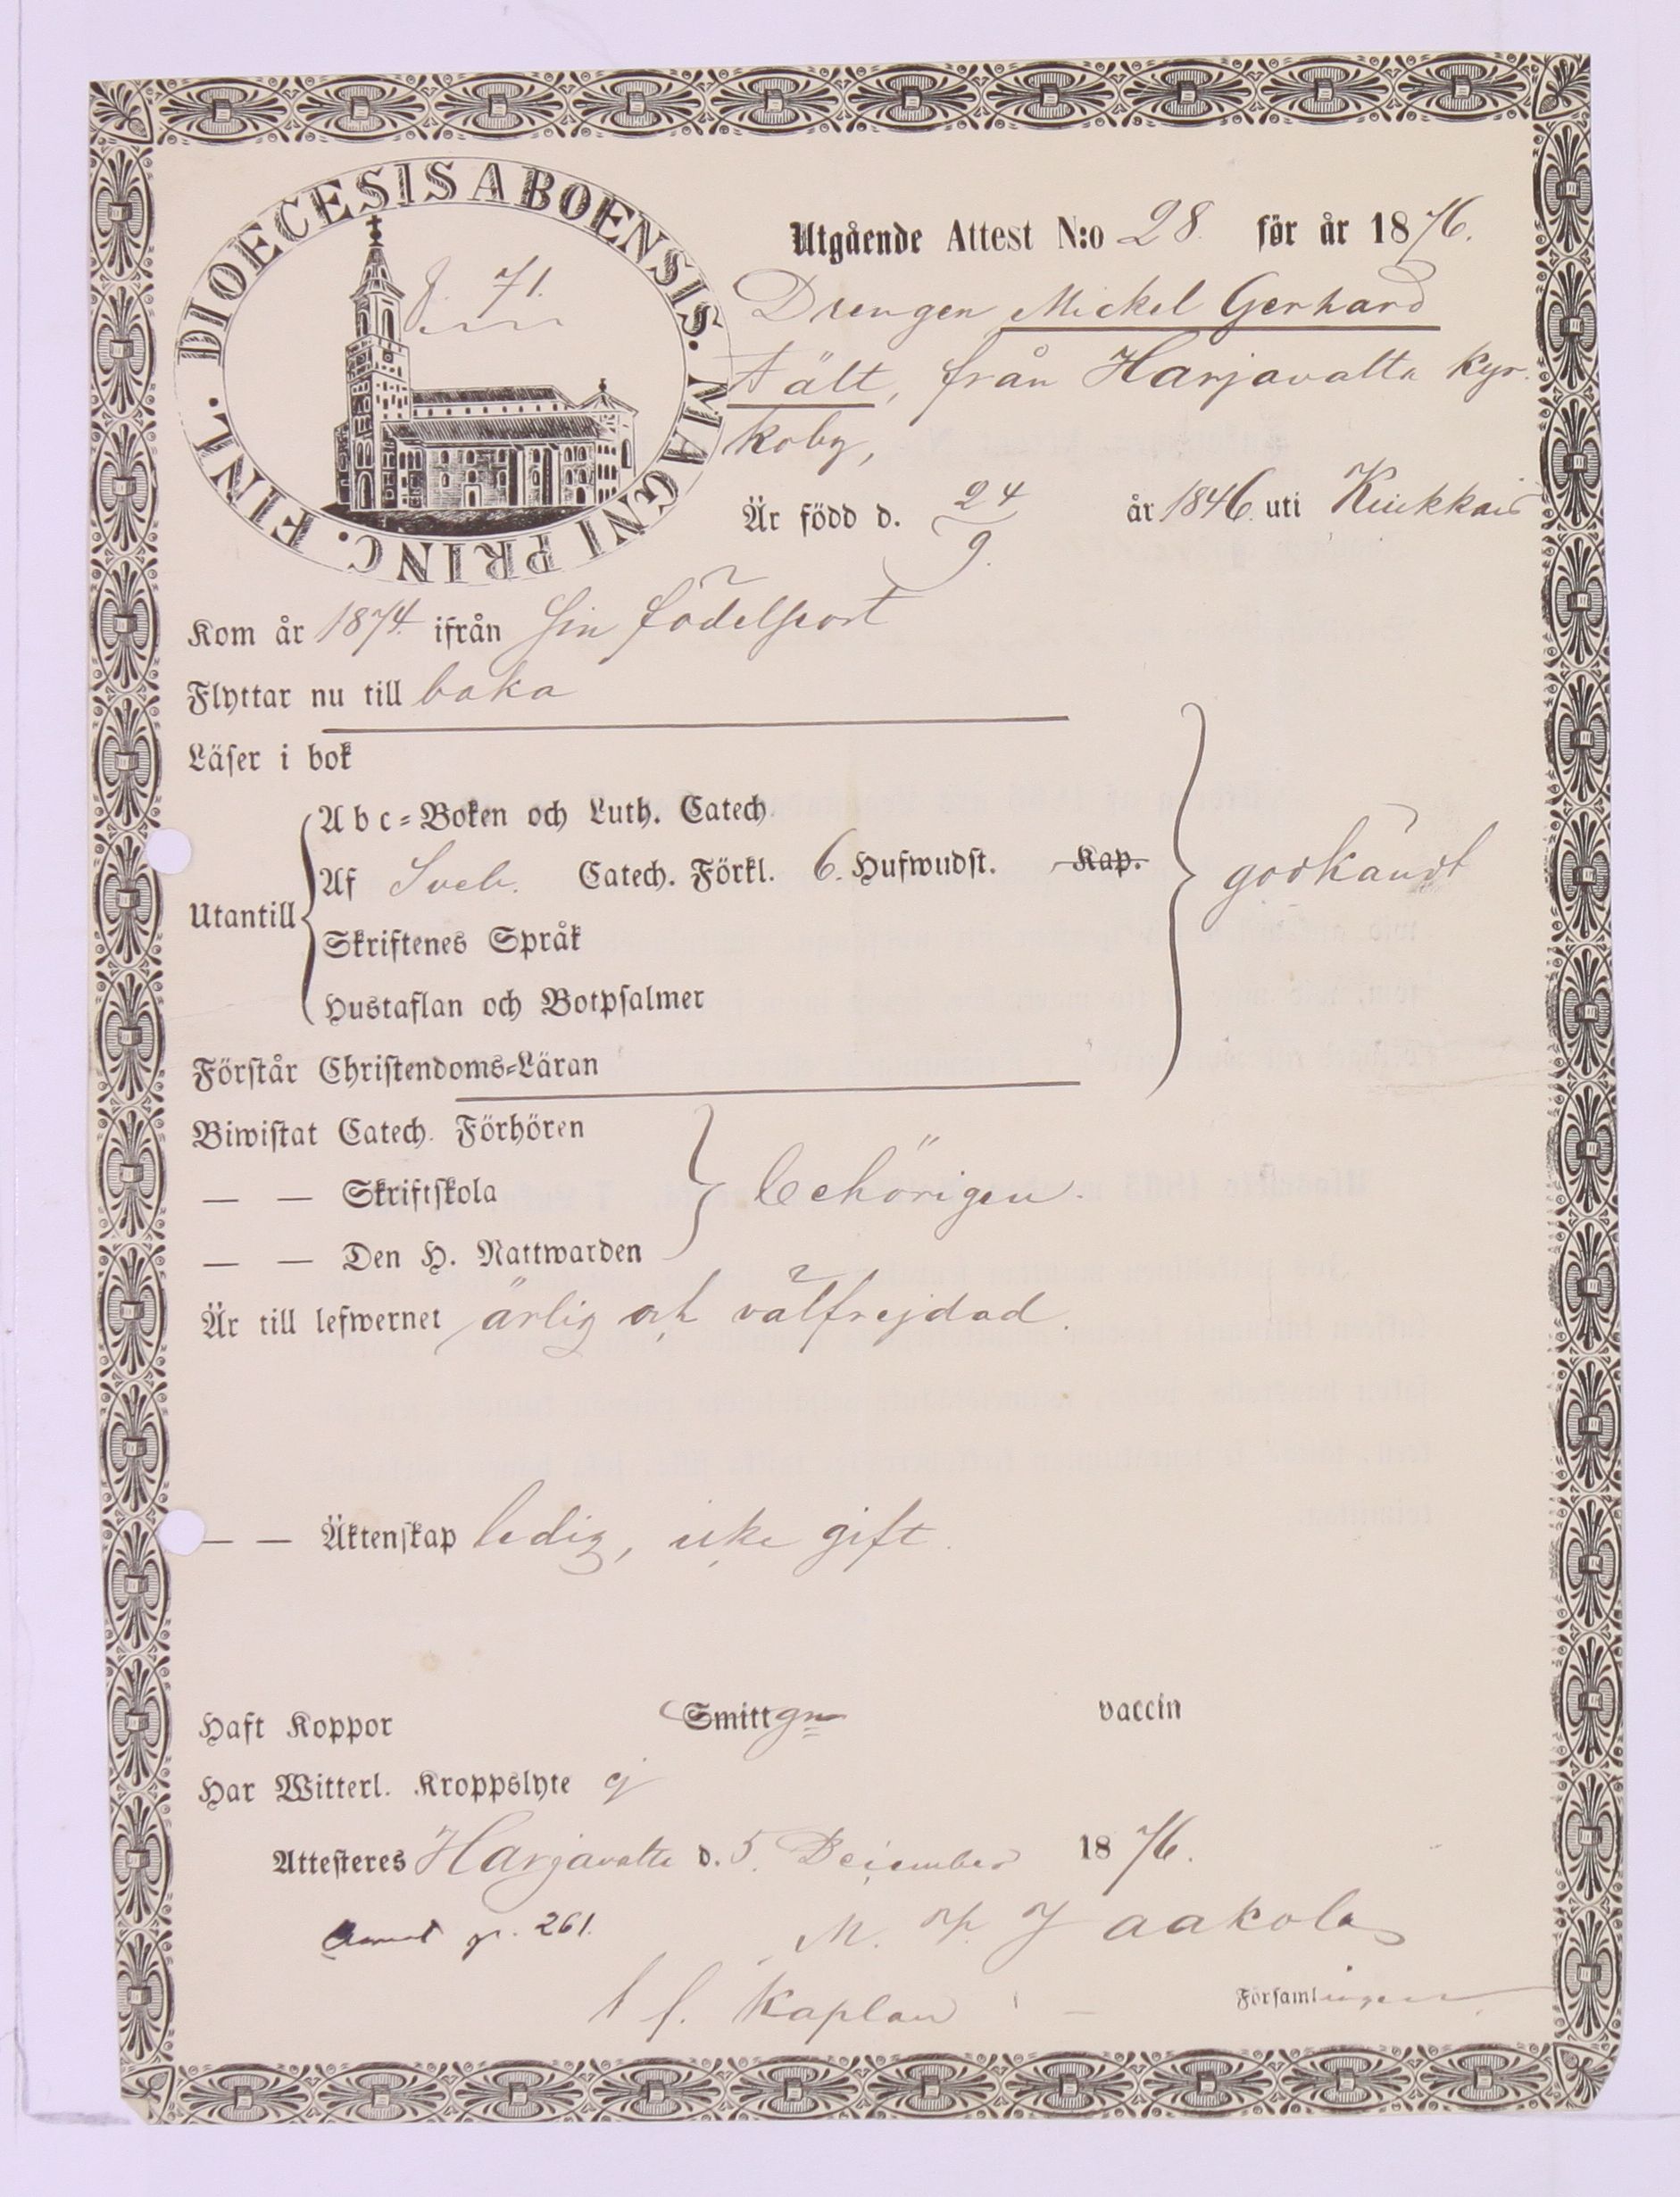 DIOECESIS ABOENSIS. MAGNI PRINC. FINL.
71.
Utgående Attest N:o 28. för år 1876.
Drengen Mickel Gerhard
Tält, från Harjavalta Kyr-
koby,
Är född d. 24/9. år 1846. uti Kiukkais
Kom år 1874. ifrån sin födelseort
Flyttar nu till baka
Läser i bok
Abc-Boken och Luth. Catech.
Af Sveb. Catech. Förkl. 6. Hufwudst. Kap.
godkändt
Utantill
Skriftenes Språk
Hustaflan och Botpsalmer
Förstår Christendoms-Läran
Biwistat Catech. Förhören
— — Skriftskola
behörigen.
— — Den H. Nattwarden
Är till lefwernet ärlig och välfrejdad.
— — Äktenskap ledig, icke gift.
Haft Koppor Smitt vaccin
Har Witterl. Kroppslyte ej
Attesteres Harjavalta d. 5. December 1876.
261. Jaakola
Kaplan Församlingen